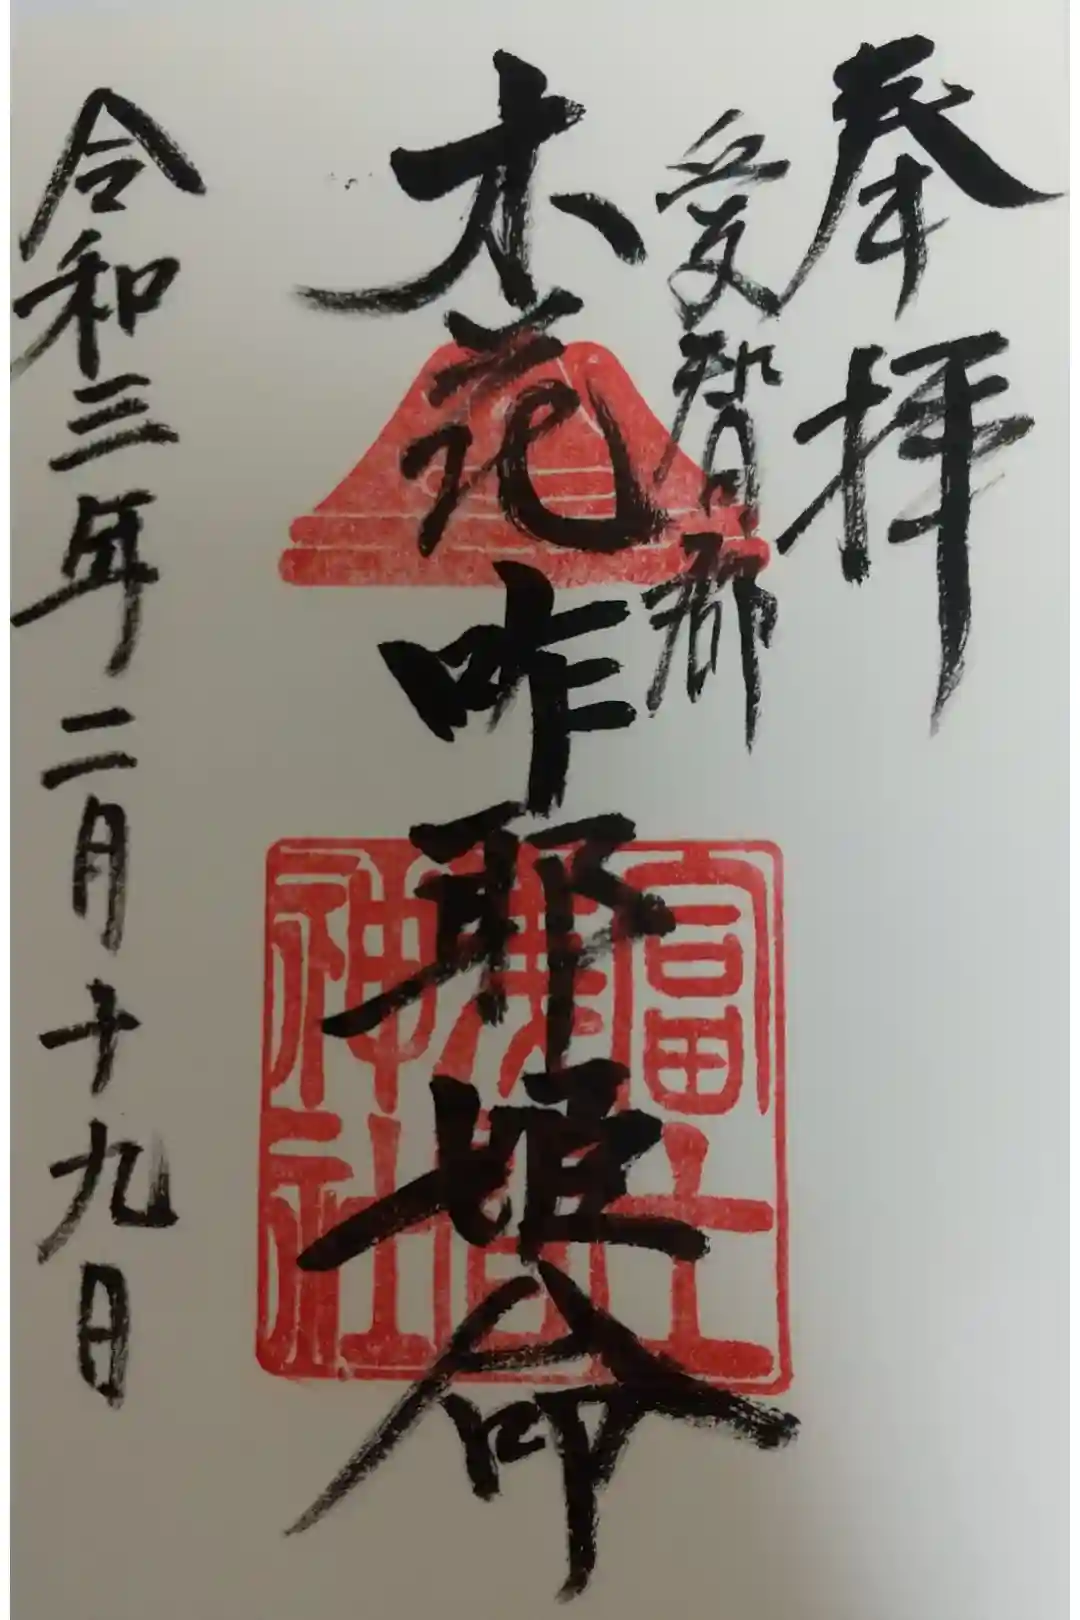 奉拝
木花咋耶姫命
富士
淺間
神社
令和三年二月十九日